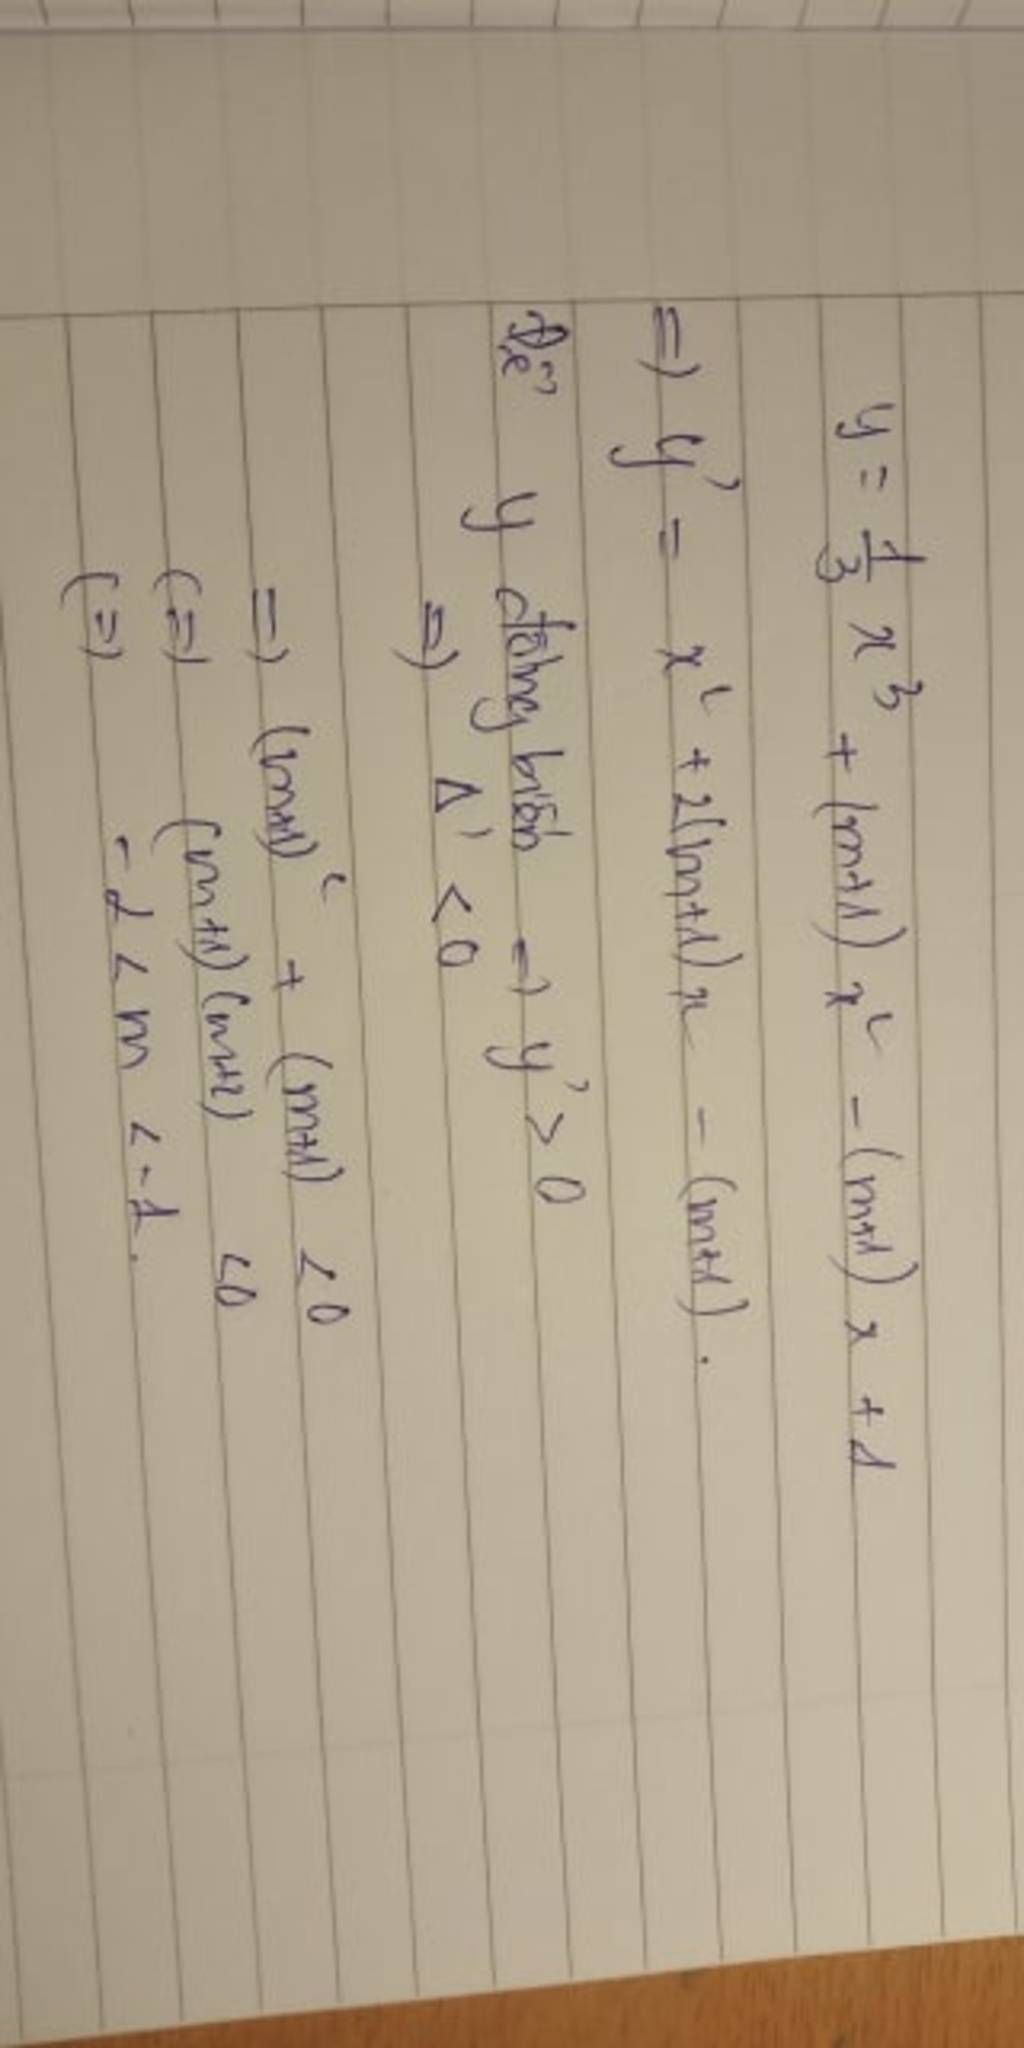 y = 1/3 x³ + (m+1) x² - (m+1) x + 1
=) y' = x² + 2(m+1) x - (m+1).
Để y đồng biến => y' > 0
=) Δ' < 0
=) (m+1)² + (m+1) < 0
(=) (m+1)(m+2) < 0
(=) -2 < m < -1.